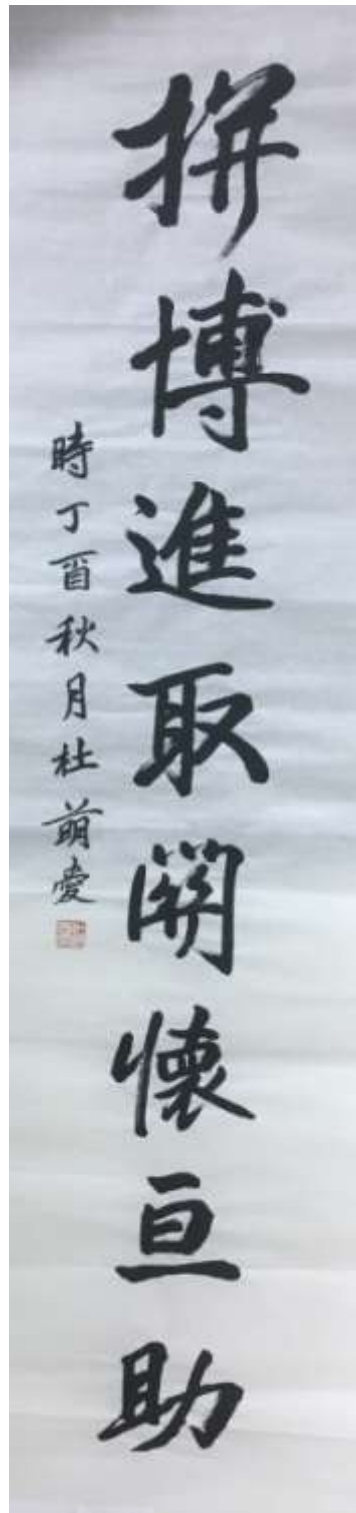 拼博進取關懷互助
時丁酉秋月杜萌愛